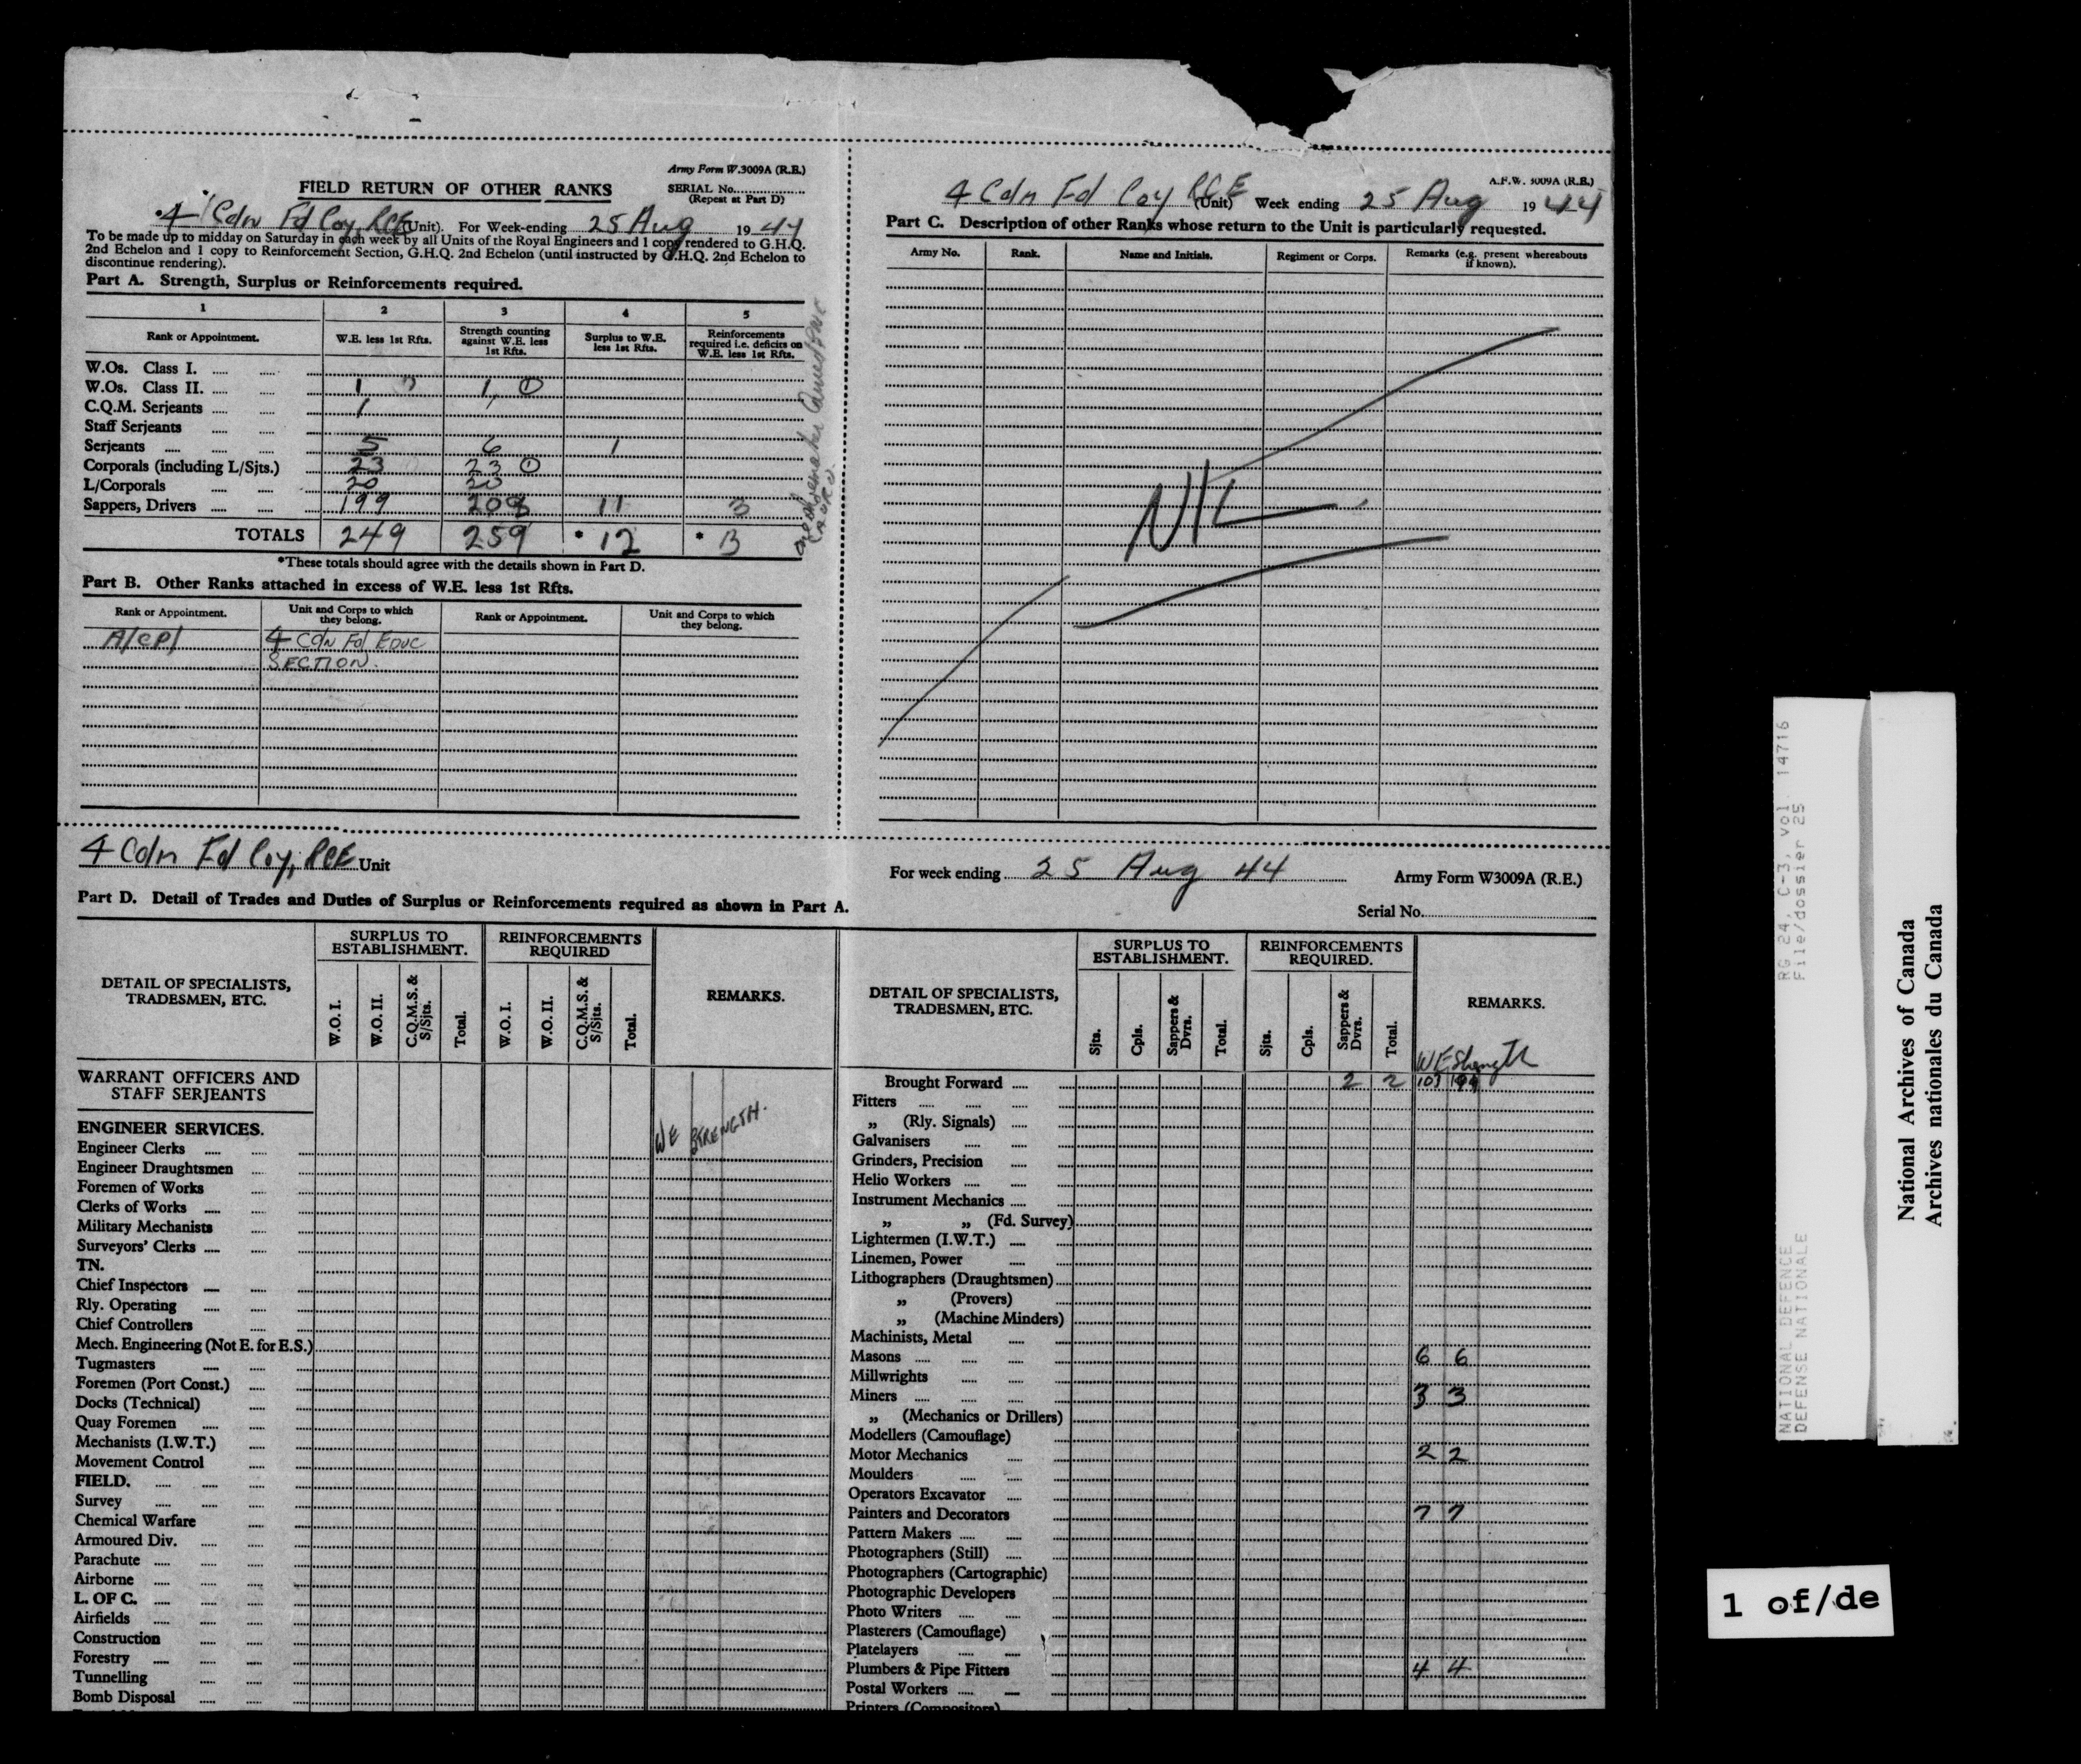 Army Form W.3009A (R.E.)
FIELD RETURN OF OTHER RANKS
SERIAL No.
(Repeat at Part D)
4 Cdn Fd Coy, RCE (Unit). For Week-ending 25 Aug 1944
To be made up to midday on Saturday in each week by all Units of the Royal Engineers and 1 copy rendered to G.H.Q.
2nd Echelon and 1 copy to Reinforcement Section, G.H.Q. 2nd Echelon (until instructed by G.H.Q. 2nd Echelon to
discontinue rendering).
Part A. Strength, Surplus or Reinforcements required.
1 2 3 4 5
Rank or Appointment. W.E. less 1st Rfts. Strength counting against W.E. less 1st Rfts. Surplus to W.E. less 1st Rfts. Reinforcements required i.e. deficits on W.E. less 1st Rfts.
W.Os. Class I.
W.Os. Class II. 1 1 ①
C.Q.M. Serjeants 1
Staff Serjeants
Serjeants 5 6 1
Corporals (including L/Sjts.) 23 23 ①
L/Corporals 20 20
Sappers, Drivers 199 11 3
TOTALS 249 259 * 12 *
*These totals should agree with the details shown in Part D.
Part B. Other Ranks attached in excess of W.E. less 1st Rfts.
Rank or Appointment. Unit and Corps to which they belong. Rank or Appointment. Unit and Corps to which they belong.
A/Cpl 4 CDN Fd EDUC
SECTION.
A.F.W. 3009A (R.E.)
4 Cdn Fd Coy RCE (Unit) Week ending 25 Aug 1944
Part C. Description of other Ranks whose return to the Unit is particularly requested.
Army No. Rank. Name and Initials. Regiment or Corps. Remarks (e.g. present whereabouts if known).
NIL
4 Cdn Fd Coy, RCE Unit
For week ending 25 Aug 44 Army Form W3009A (R.E.)
Part D. Detail of Trades and Duties of Surplus or Reinforcements required as shown in Part A.
Serial No.
DETAIL OF SPECIALISTS, TRADESMEN, ETC. SURPLUS TO ESTABLISHMENT. REINFORCEMENTS REQUIRED REMARKS.
W.O. I. W.O. II. C.Q.M.S. & S/Sjts. Total. W.O. I. W.O. II. C.Q.M.S. & S/Sjts. Total.
WARRANT OFFICERS AND
STAFF SERJEANTS
WE STRENGTH.
ENGINEER SERVICES.
Engineer Clerks
Engineer Draughtsmen
Foremen of Works
Clerks of Works
Military Mechanists
Surveyors' Clerks
TN.
Chief Inspectors
Rly. Operating
Chief Controllers
Mech. Engineering (Not E. for E.S.)
Tugmasters
Foremen (Port Const.)
Docks (Technical)
Quay Foremen
Mechanists (I.W.T.)
Movement Control
FIELD.
Survey
Chemical Warfare
Armoured Div.
Parachute
Airborne
L. OF C.
Airfields
Construction
Forestry
Tunnelling
Bomb Disposal
DETAIL OF SPECIALISTS, TRADESMEN, ETC. SURPLUS TO ESTABLISHMENT. REINFORCEMENTS REQUIRED. REMARKS.
Sjts. Cpls. Sappers & Dvrs. Total. Sjts. Cpls. Sappers & Dvrs. Total.
WE Strength
Brought Forward 2 2 103
Fitters
„ (Rly. Signals)
Galvanisers
Grinders, Precision
Helio Workers
Instrument Mechanics
„ „ (Fd. Survey)
Lightermen (I.W.T.)
Linemen, Power
Lithographers (Draughtsmen)
„ (Provers)
„ (Machine Minders)
Machinists, Metal
Masons 6 6
Millwrights
Miners 3 3
„ (Mechanics or Drillers)
Modellers (Camouflage)
Motor Mechanics 2 2
Moulders
Operators Excavator
Painters and Decorators 7 7
Pattern Makers
Photographers (Still)
Photographers (Cartographic)
Photographic Developers
Photo Writers
Plasterers (Camouflage)
Platelayers
Plumbers & Pipe Fitters 4 4
Postal Workers
Printers (Compositors)
RG 24, C-3, vol. 14716
File/dossier 25
NATIONAL DEFENCE
DEFENSE NATIONALE
National Archives of Canada
Archives nationales du Canada
1 of/de